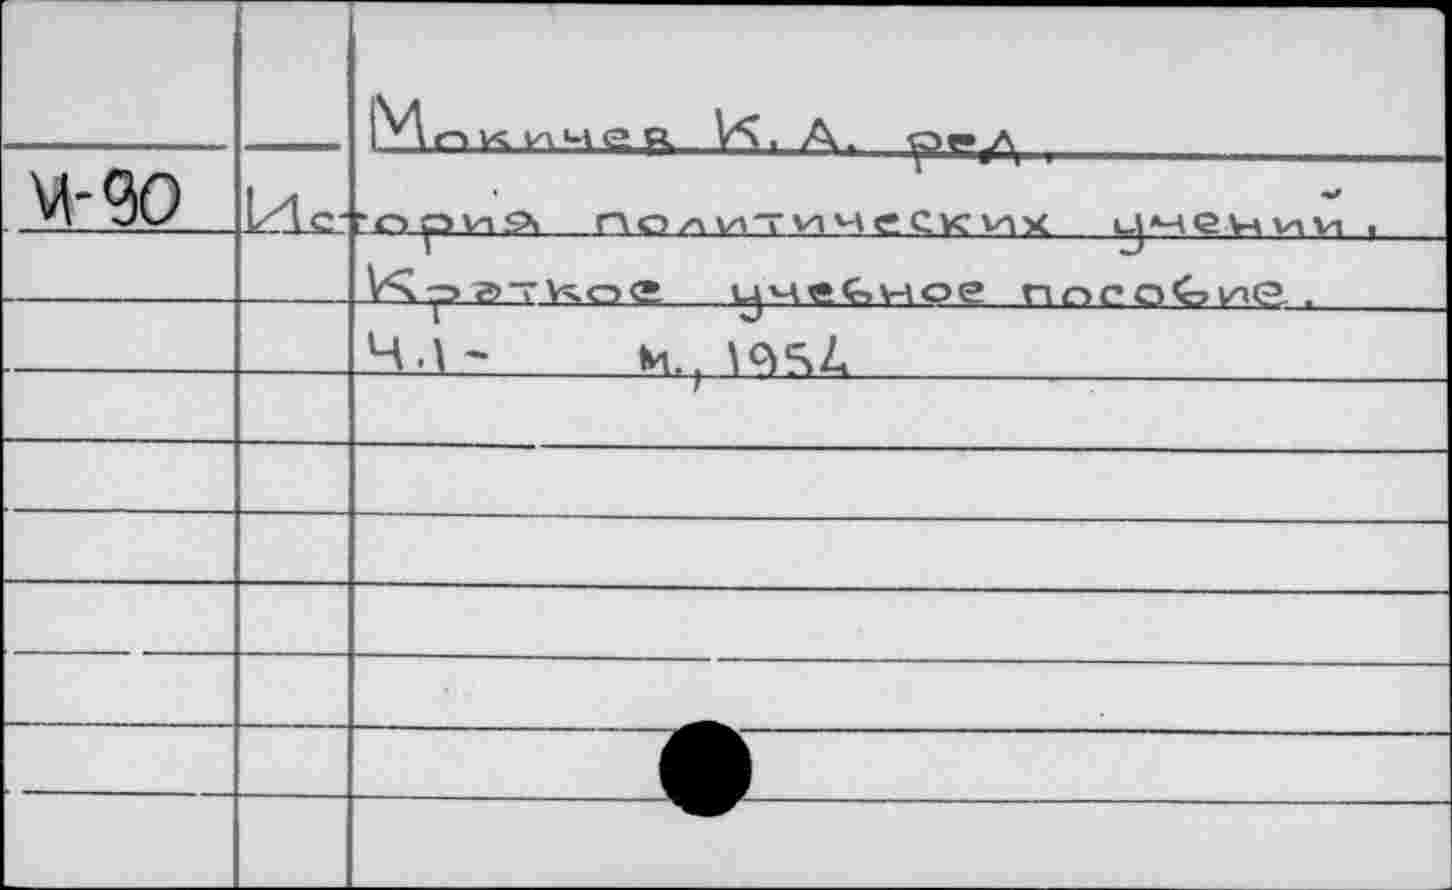 Мокичев К. А. ред.
И-90 История политических учений.
Краткое учебное пособие.
Ч.1- М., 1954